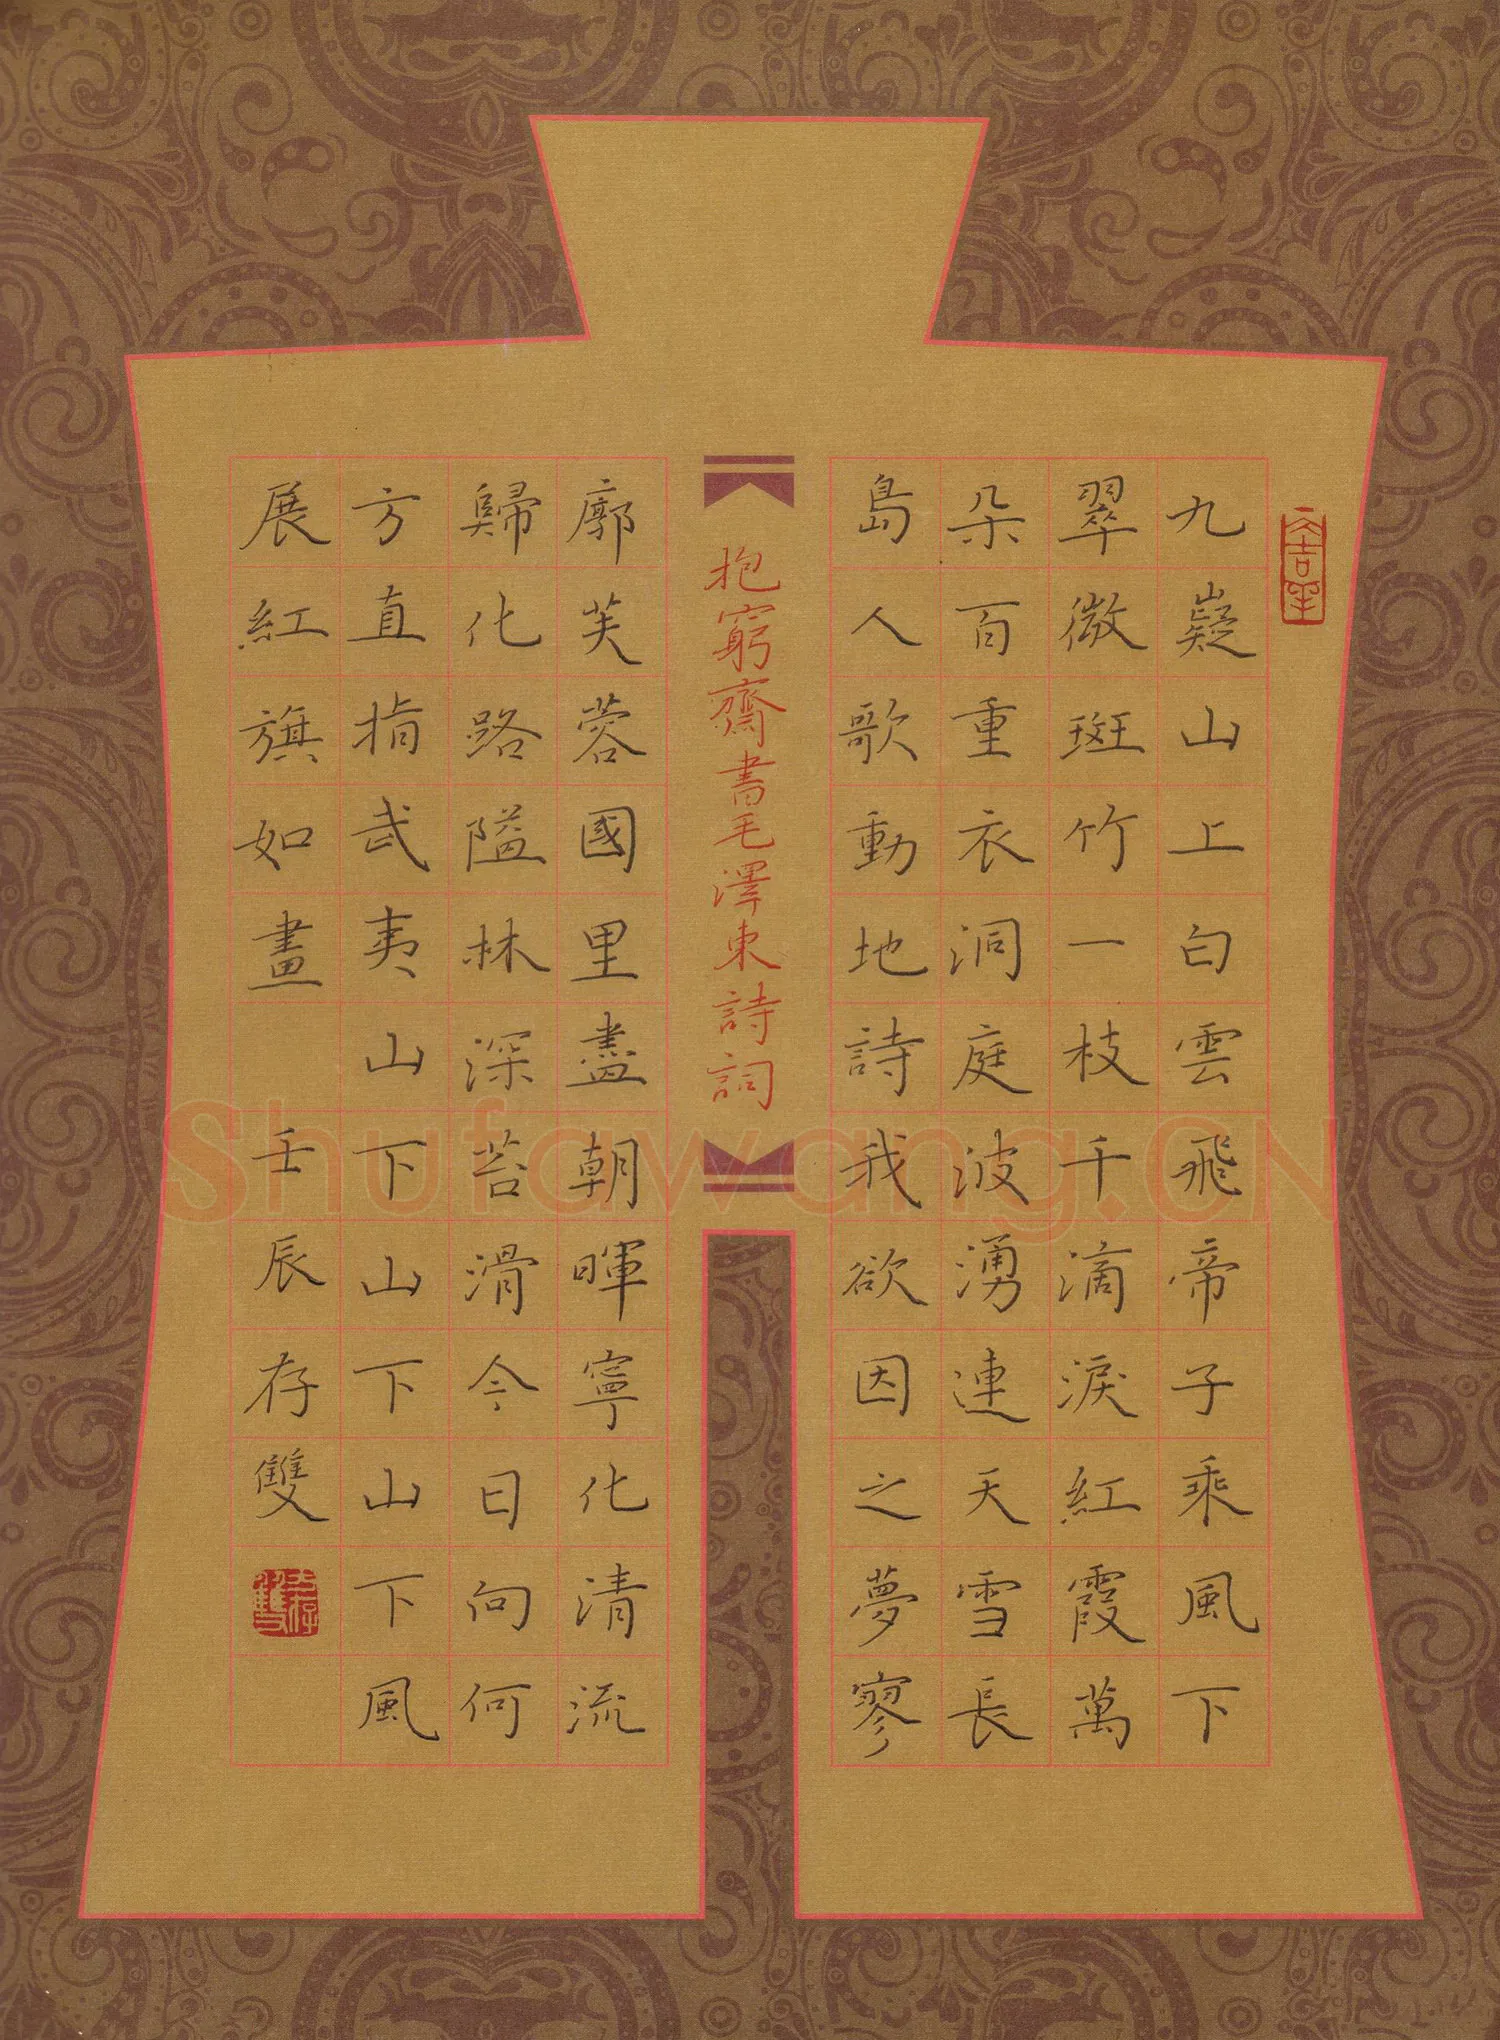 大吉羊
九嶷山上白雲飛帝子乘風下
翠微斑竹一枝千滴淚紅霞萬
朵百重衣洞庭波湧連天雪長
島人歌動地詩我欲因之夢寥
抱窮齋書毛澤東詩詞
廓芙蓉國里盡朝暉寧化清流
歸化路隘林深苔滑今日向何
方直指武夷山下山下山下風
展紅旗如畫 壬辰存雙
Shufawang.CN